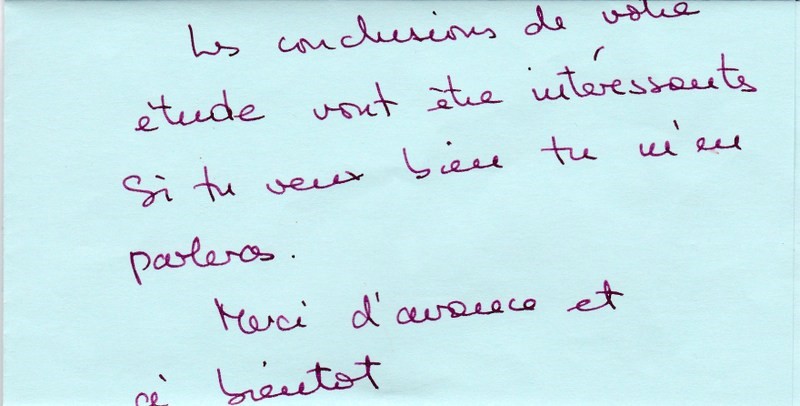 Les conclusions de votre
étude vont être intéressantes
Si tu veux bien tu m'en
parleras.
Merci d'avance et
à bientot